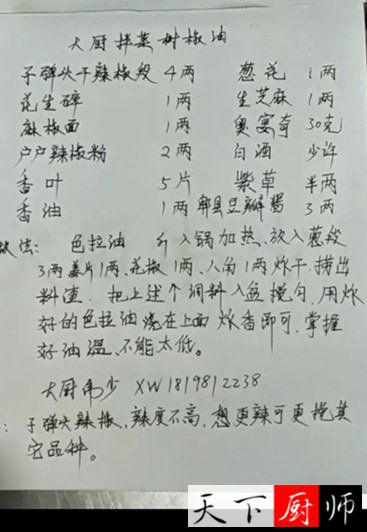 大厨拌菜树椒油
子弹头干辣椒段 4两 葱花 1两
花生碎 1两 生芝麻 1两
麻椒面 1两 奥宴奇 30克
户户辣椒粉 2两 白酒 少许
香叶 5片 紫草 半两
香油 1两 郫县豆瓣酱 3两
做法: 色拉油 斤入锅加热、放入葱段
3两姜片1两、花椒1两、八角1两炸干、捞出
料渣. 把上述个调料入盆搅匀,用炸
好的色拉油浇在上面炸香即可,掌握
好油温、不能太低。
大厨 少 XW1819812238
: 子弹头辣椒,辣度不高,想更辣可更换其
它品种。
天下厨师